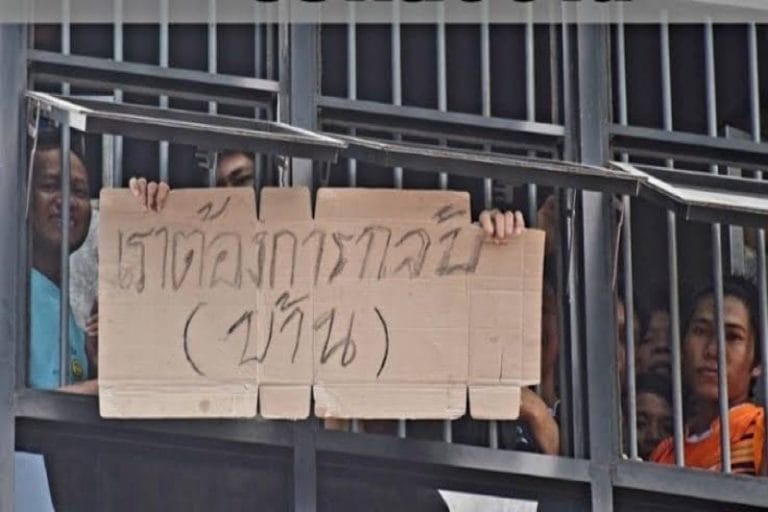 เราต้องการกลับ
(บ้าน)